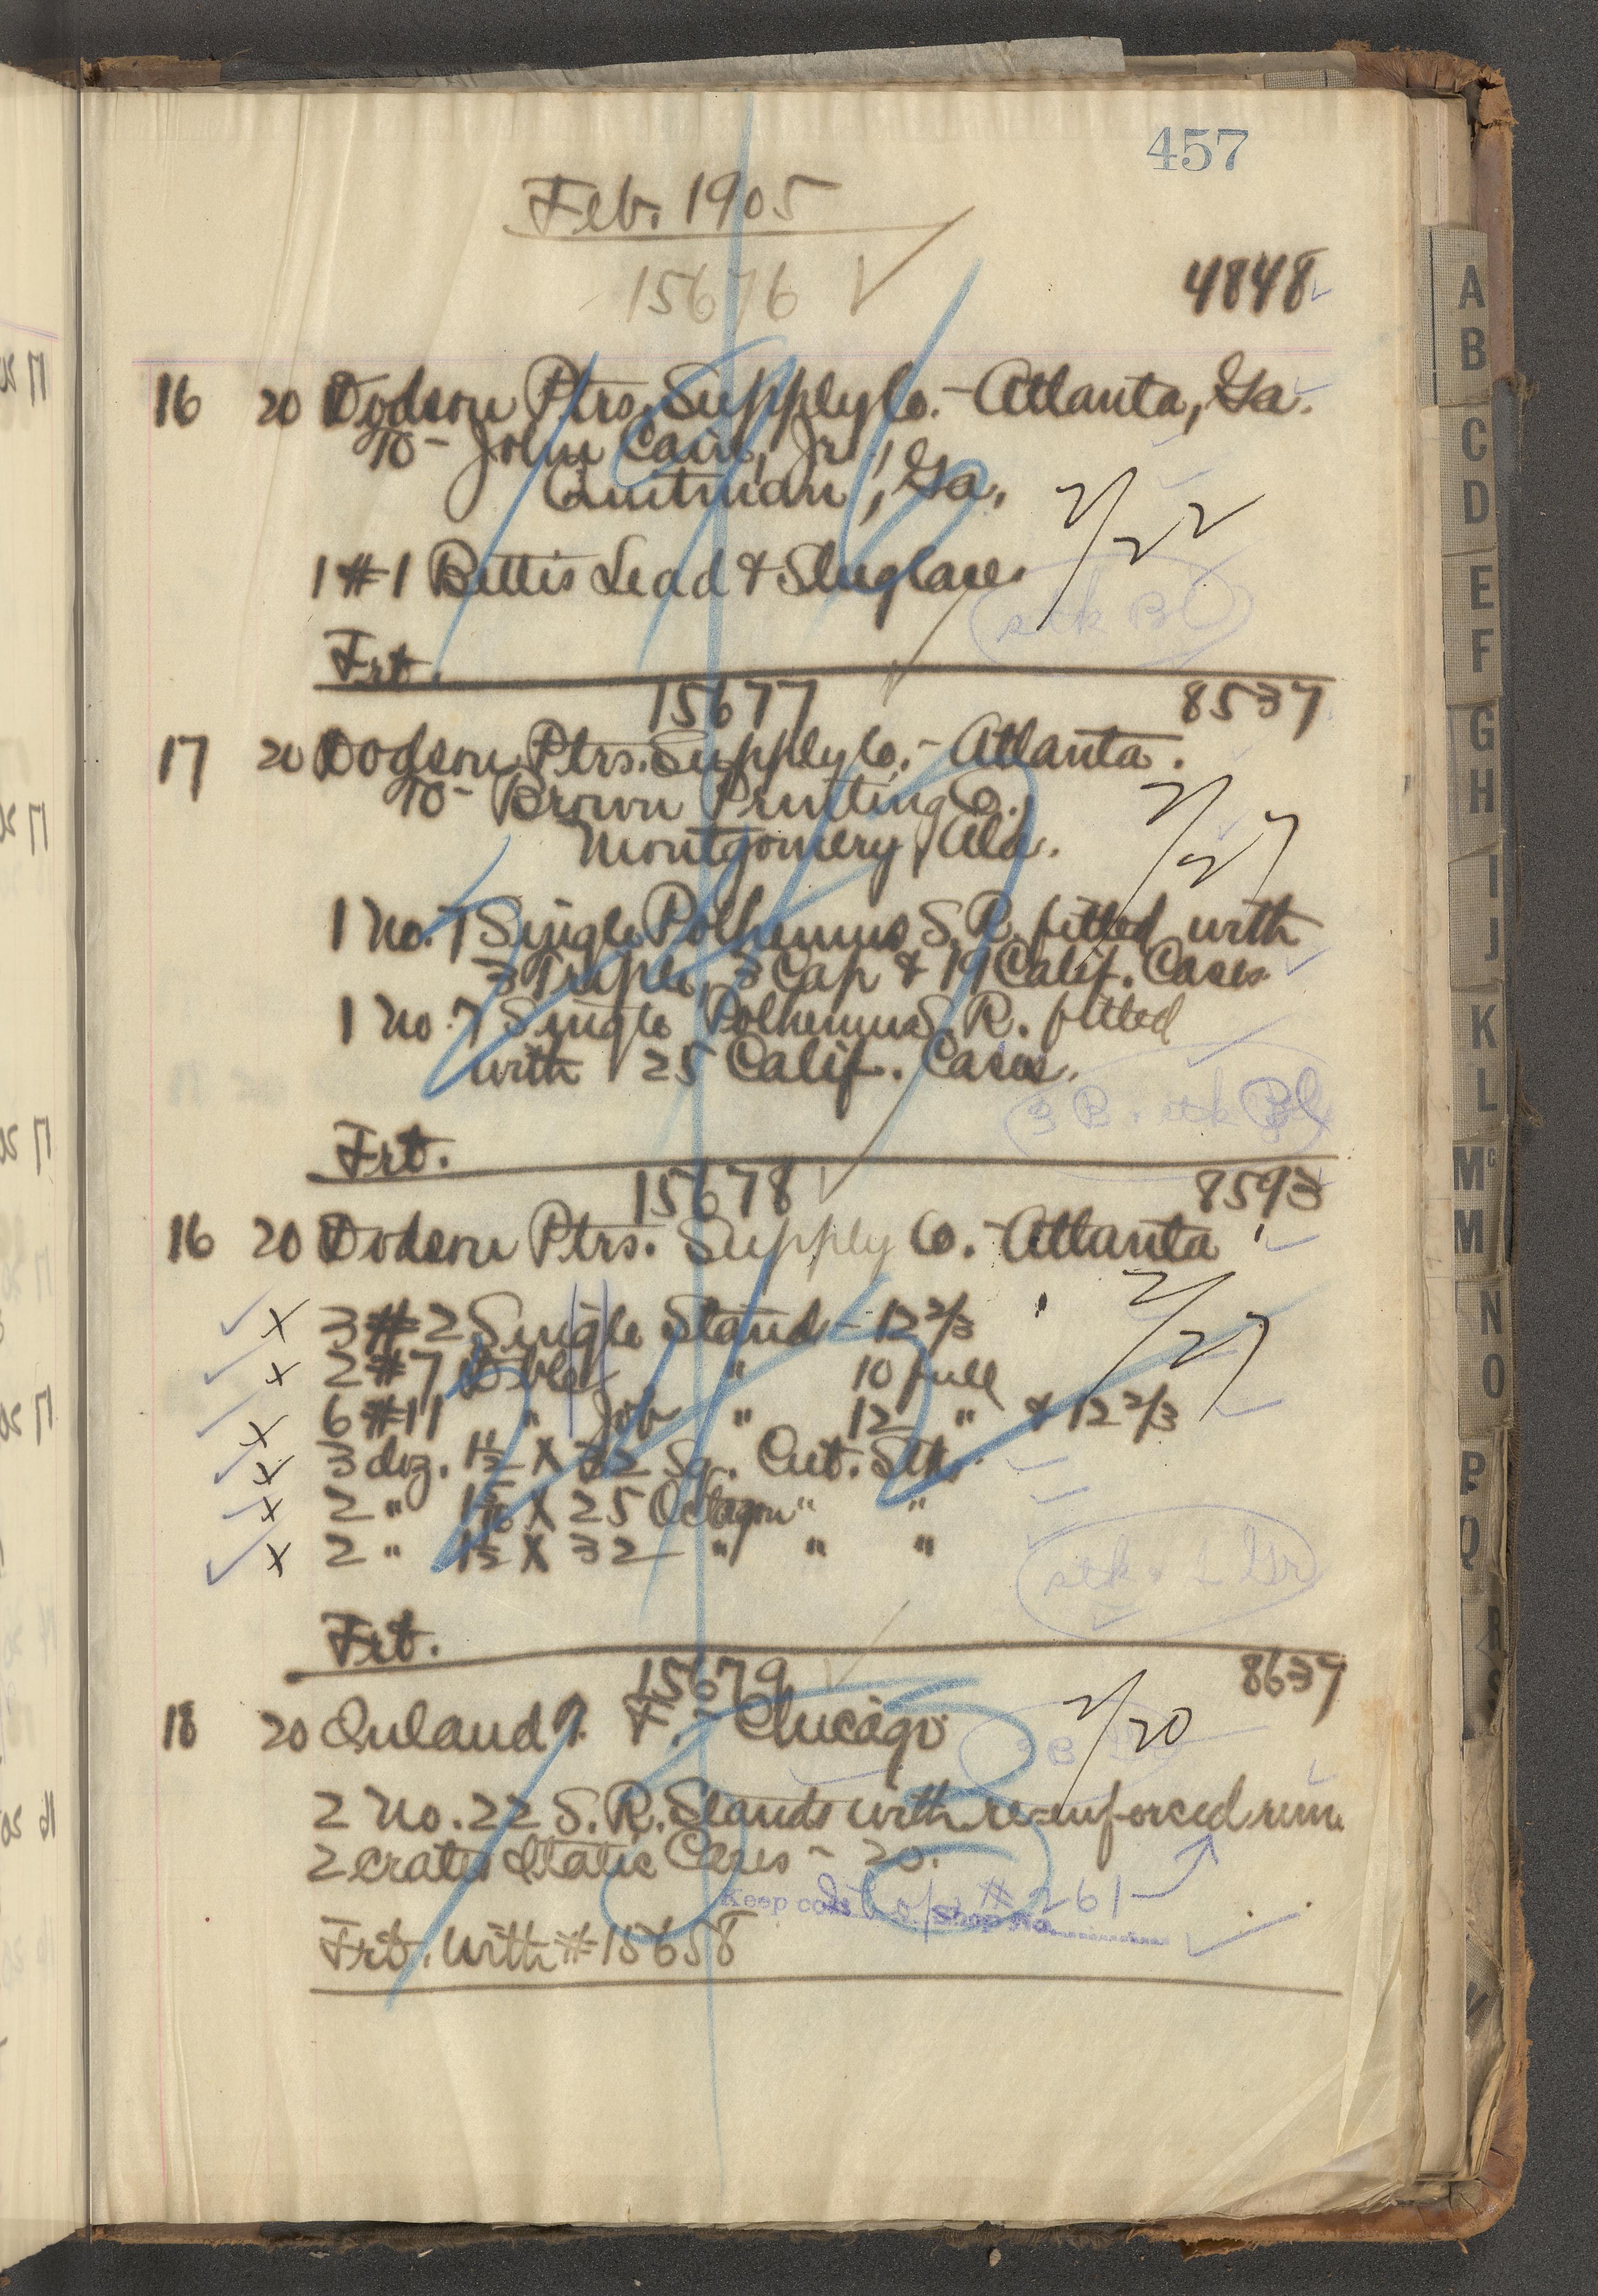 457
Feb. 1905
15676 4848
16 20 Dodson Ptrs. Supply Co. - Atlanta, Ga.
To - John Cain, Jr.,
Quitman, Ga.
2/22
1 #1 Bettis Lead & Slug Case.
stk Bl
Frt.
15677 8537
17 20 Dodson Ptrs. Supply Co. - Atlanta.
To - Brown Printing Co.,
Montgomery, Ala.
2/27
1 No. 7 Single Polhemus S. R. fitted with
3 Triple, 3 Cap & 19 Calif. Cases
1 No. 7 Single Polhemus S. R. fitted
with 25 Calif. Cases.
3 B. stk Bl
Frt.
15678 8593
16 20 Dodson Ptrs. Supply Co. - Atlanta
2/27
x 3 #2 Single Stand - 12 2/3
x 2 #7 Dble " 10 full
x 6 #11 " Job " 12 " & 12 2/3
x 3 doz. 1 1/2 X 32 Sq. Cut. Stks.
x 2 " 1 5/16 X 25 Octagon " "
x 2 " 1 1/2 X 32 " " "
Frt.
15679 8637
18 20 Inland T. F. - Chicago
2/20
2 No. 22 S. R. Stands with re-enforced runs
2 crates Italic Cases - 20.
Keep cost of Shop No. #261
Frt. with #15658
A
B
C
D
E
F
G
H
I
J
K
L
Mc
M
N
O
P
Q
R